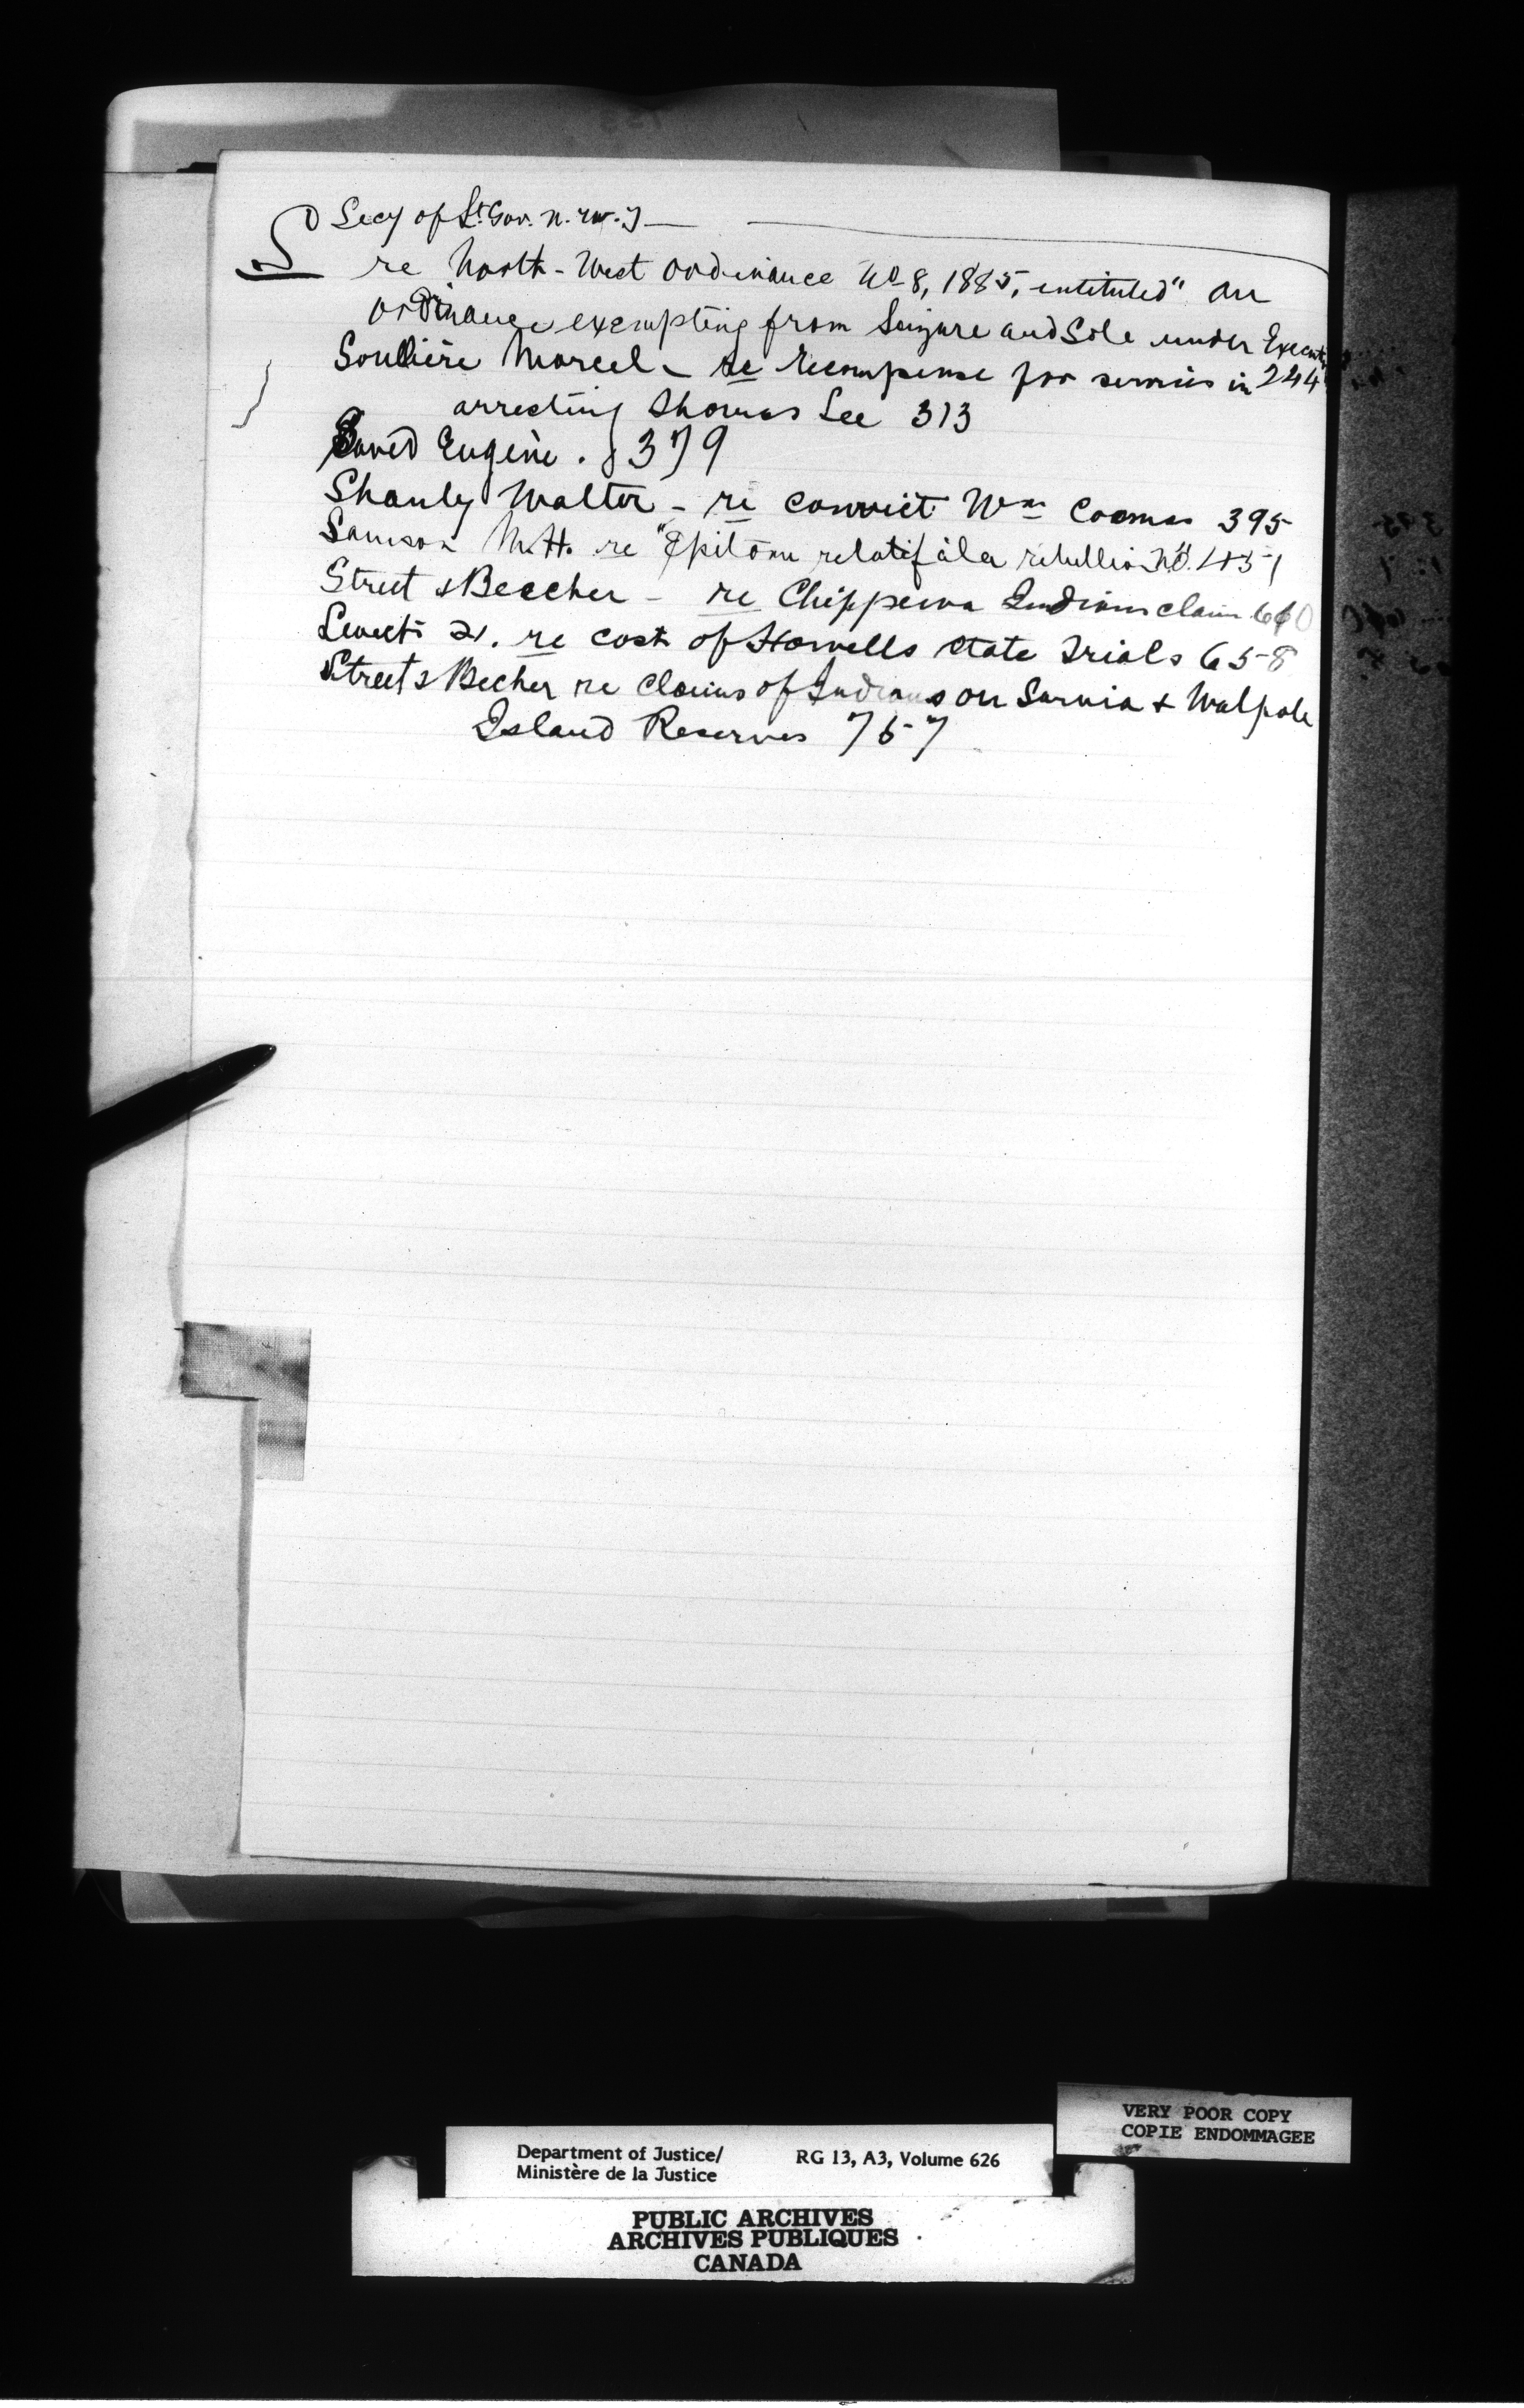 S
Secy of Lt. Gov. N. W. T —
re North-West Ordinance No 8, 1885, entituled "An
Ordinance exempting from Seizure and Sale under Execut
Soulliere Marcel - re recompense for services in 244
arresting Thomas Lee 313
Eugène . 379
Shanly Walter - re convict Wm Coomas 395
Samson M.H. re "Epitome relatif à la rebellion N.O. 451
Street & Beecher - re Chippewa Indians claim
re cost of Howells State Trials 658
Street & Becher re claims of Indians on Sarnia & Walpole
Island Reserves 757
VERY POOR COPY
COPIE ENDOMMAGEE
Department of Justice/ RG 13, A3, Volume 626
Ministère de la Justice
PUBLIC ARCHIVES
ARCHIVES PUBLIQUES
CANADA